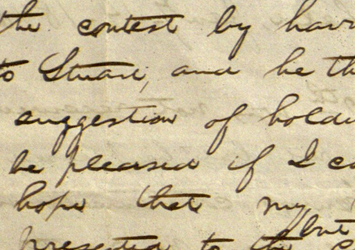 the contest by havi
to Stuart, and he th
suggestion of holdi
be pleased if I co
hope that my
but
presented to the